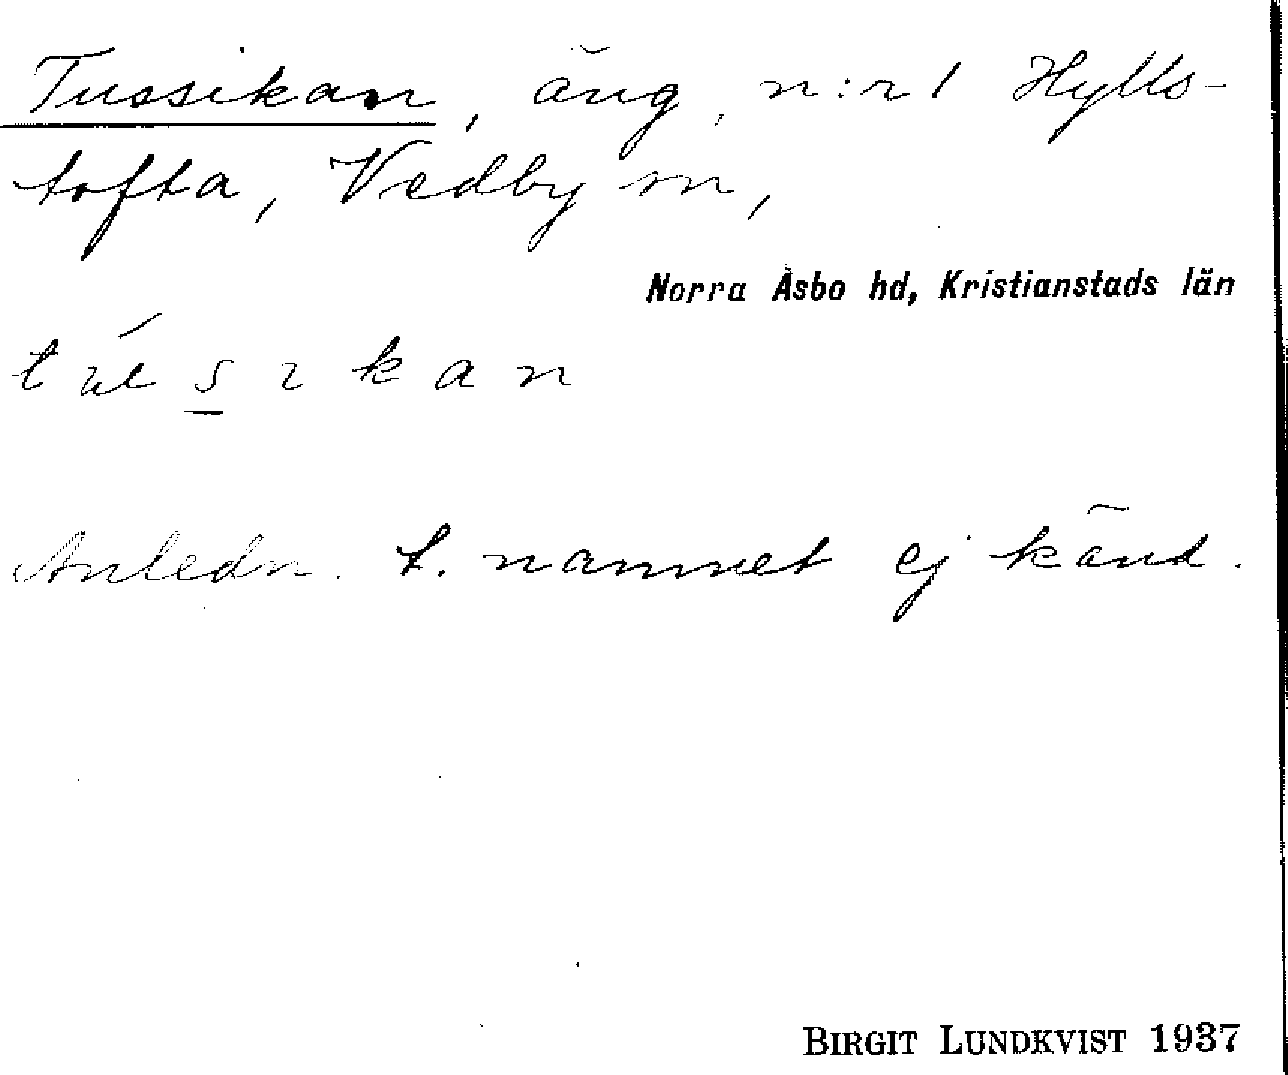 Tussikan, äng, n:r 1 Hylls-
tofta, Vedby sn,
Norra Åsbo hd, Kristianstads län
Anledn. t. namnet ej känd.
BIRGIT LUNDKVIST 1937